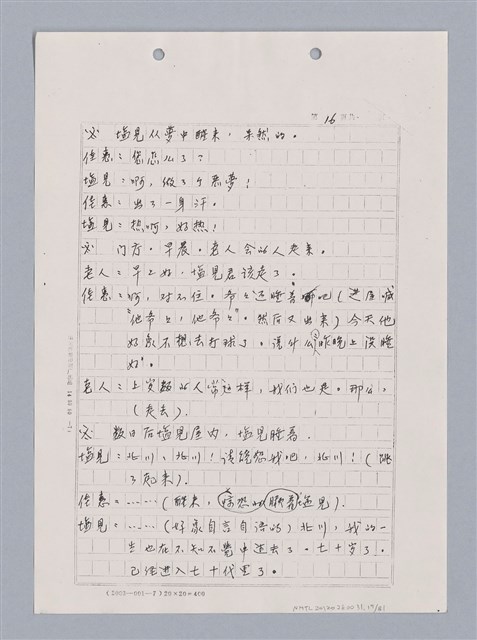 第 16 頁
※ 塩見从夢中醒来，茫然的。
佳惠：您怎么了？
塩見：啊，做了个悪夢！
佳惠：出了一身汗。
塩見：热啊，好热！
※ 门厅。早晨。老人会的人走来。
老人：早上好，塩見君該走了。
佳惠：啊，对不住。爷爷还睡着哪吧（进屋喊
“他爷爷，他爷爷”。然后又出来）今天他
好象不想去打球了。说什么昨晚上没睡
好”。
老人：上岁数的人常这样，我们也是。那么，
（走去）。
※ 数日后塩見屋内，塩見睡着．
塩見：北川、北川！请饶恕我吧，北川！（跳
了起来）．
佳惠：……（醒来，愕然的瞅着塩見）．
塩見：……（好象自言自语的）北川，我的一
生也在不知不覺中逝去了。七十岁了。
已经进入七十代里了。
(2003—001—7)20×20=400